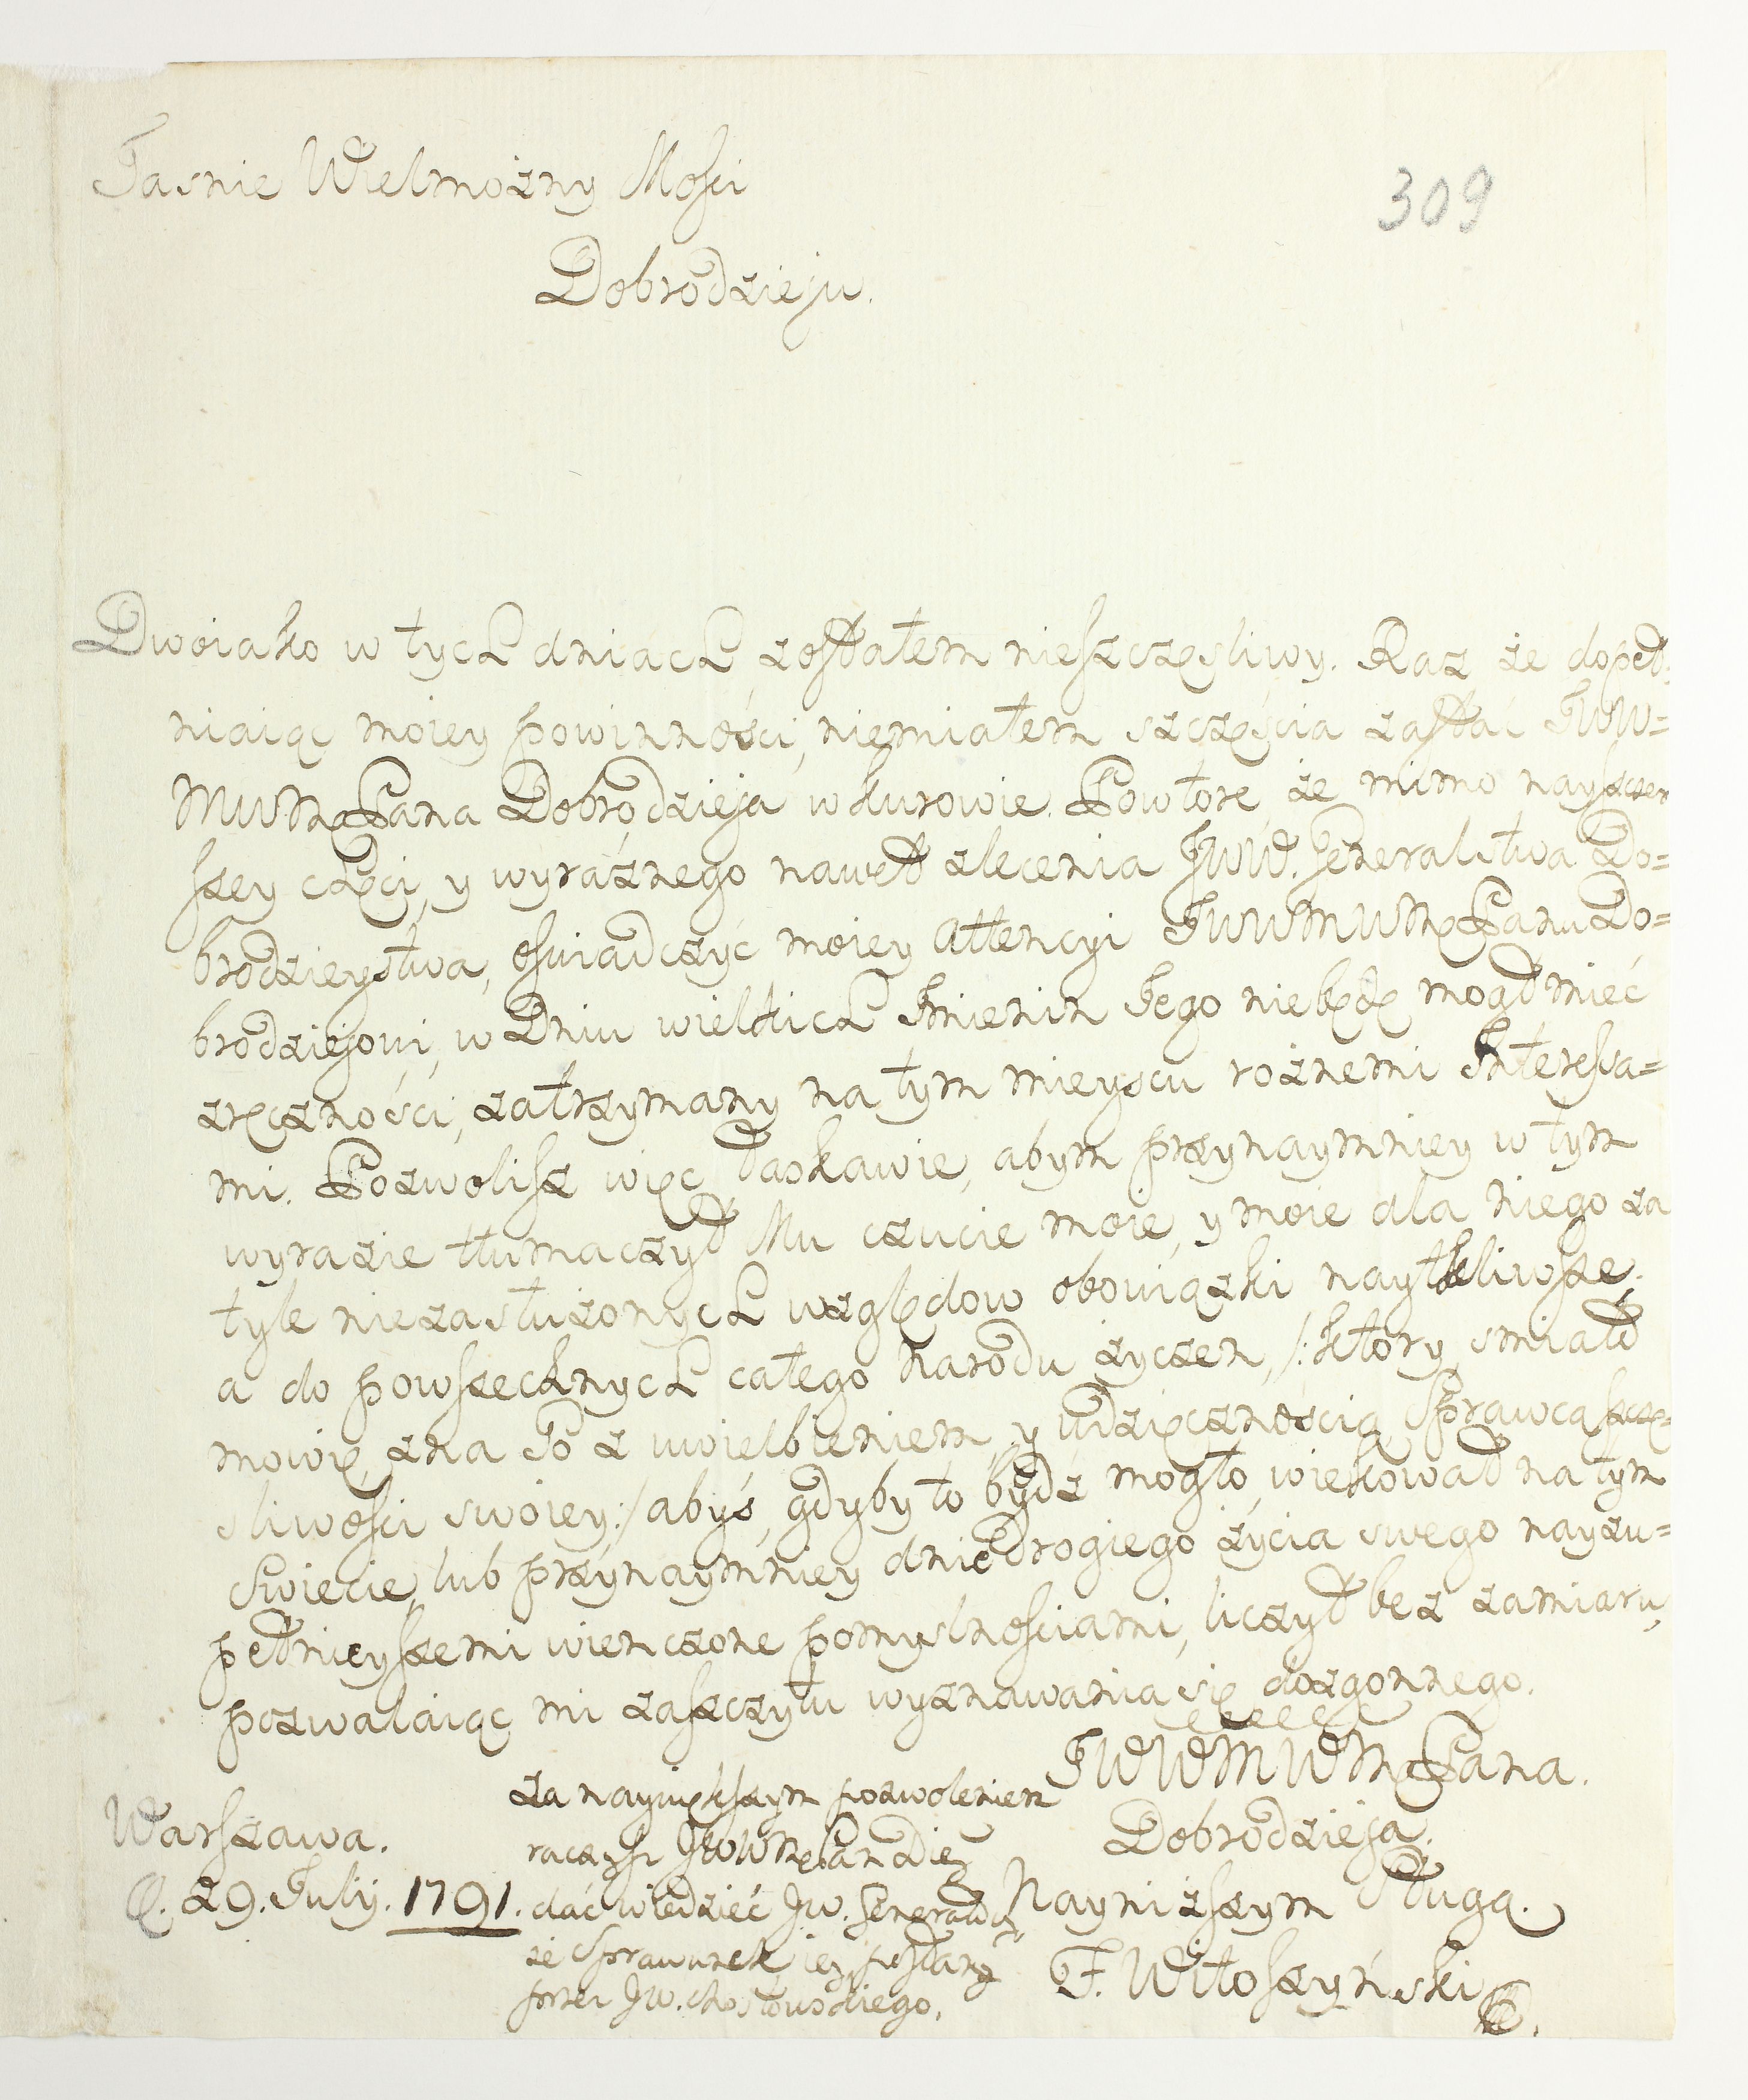 309
Jasnie Wielmożny Mości
Dobrodzieju.
Dwoiako w tych dniach zostałem nieszczęsliwy. Raz że dopeł:
niaiąc moiey powinności, niemiałem szczęścia zastać JWW=
MWMPana Dobrodzieja w Kurowie. Powtore że mimo nayszczer
szey chęci, y wyraźnego nawet zlecenia JWW. Jeneralstwa Do=
brodzieystwa, oswiadczyć moiey attencyi JWWMWMPanu Do=
brodziejowi, w Dniu wielkich Imienin Jego niebędę mogł mieć
zręczności, zatrzymany na tym mieyscu rożnemi Interessa=
mi. Pozwolisz więc łaskawie, abym przynaymniey w tym
wyrazie tłumaczył Mu czucie moie, y moie dla niego za
tyle niezasłużonych względow obowiązki naytkliwsze.
a do powszechnych całego narodu życzen, /: ktory, smiało
mowię, zna Jo z uwielbieniem, y wdzięcznością, Sprawcą szczę=
sliwości swoiey :/ abyś, gdyby to bydź mogło, wiekował na tym
Swiecie, lub przynaymniey dnie drogiego życia swego nayzu=
pełnieyszemi wienczone pomyslnościami, liczył bez zamiaru,
pozwalaiąc mi zaszczytu wyznawania się dozgonnego.
JWWMWMPana.
Dobrodzieja.
Nayniższym Sługą.
F. Witoszyński
Warszawa.
D. 29. July. 1791.
za naywiększym pozwoleniem
raczysz JWWMPan Dziey
dać wiedzieć Jw. Generałowy
że Sprawunek iey posłany
przez Jw. Chostowskiego.